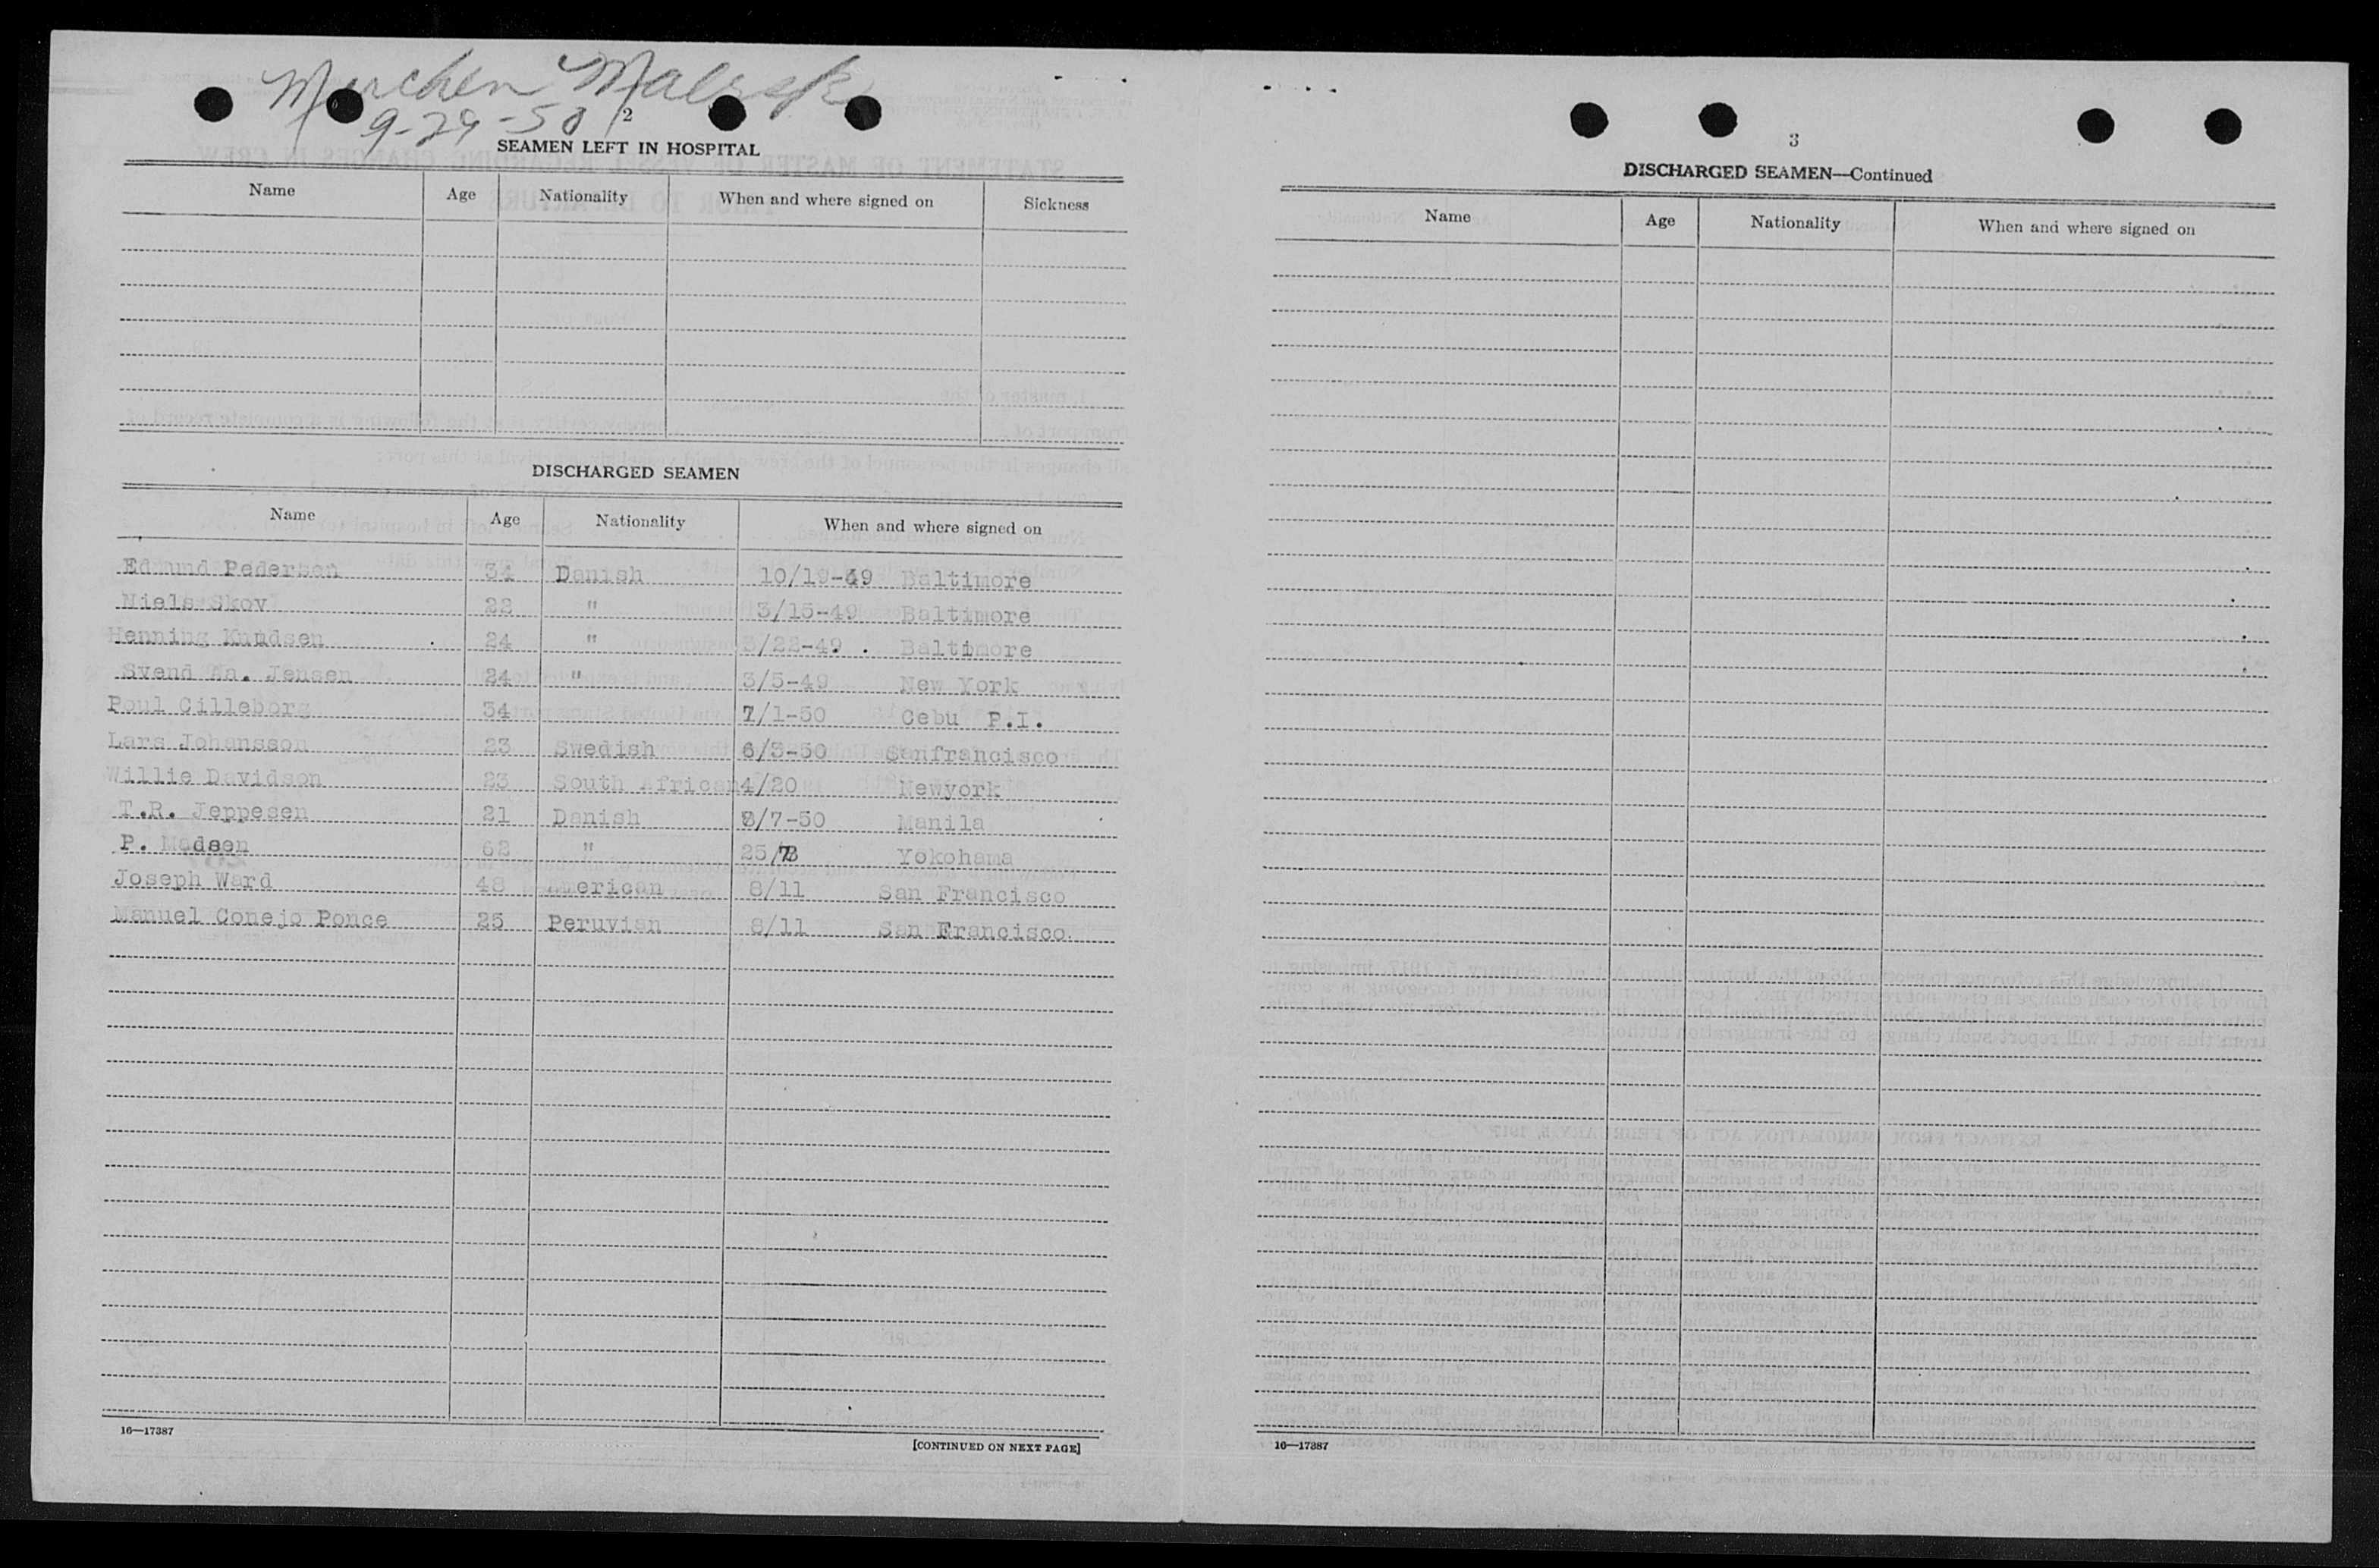 9-29-50
2
SEAMEN LEFT IN HOSPITAL
Name Age Nationality When and where signed on Sickness
DISCHARGED SEAMEN
Name Age Nationality When and where signed on
Edmund Pedersen 34 Danish 10/19-49 Baltimore
Niels Skov 22 " 3/15-49 Baltimore
Henning Kundsen 24 " 3/22-49. Baltimore
Svend Aa. Jensen 24 " 3/5-49 New York
Poul Gilleborg 34 7/1-50 Cebu P.I.
Lars Johansson 23 Swedish 6/3-50 Sanfrancisco
Willie Davidson 23 South African 4/20 Newyork
T.R. Jeppesen 21 Danish /7-50 Manila
P. Madsen 62 " 25/ Yokohama
Joseph Ward 48 American 8/11 San Francisco
Manuel Conejo Ponce 25 Peruvian 8/11 San Francisco.
16—17387
[CONTINUED ON NEXT PAGE]
3
DISCHARGED SEAMEN—Continued
Name Age Nationality When and where signed on
16—17387